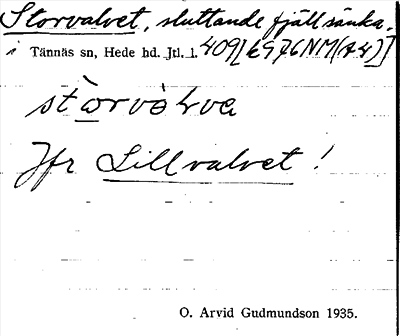 Storvalvet, sluttande fjällsänka.
i Tännäs sn, Hede hd. Jtl. l. 409
stɷrvàlva
Jfr Lillvalvet!
O. Arvid Gudmundson 1935.